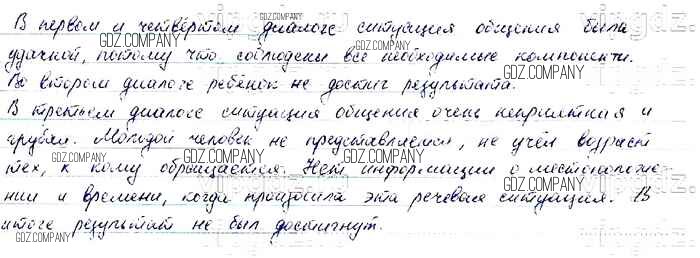 В первом и четвёртом диалоге ситуация общения была
удачной, потому что соблюдены все необходимые компоненты.
Во втором диалоге ребёнок не достиг результата.
В третьем диалоге ситуация общения очень неприятная и
грубая. Молодой человек не представляется, не учёл возраст
тех, к кому обращается. Нет информации о местоположе-
нии и времени, когда произошла эта речевая ситуация. В
итоге результат не был достигнут.
GDZ.COMPANY
GDZ.COMPANY
GDZ.COMPANY
GDZ.COMPANY
GDZ.COMPANY
GDZ.COMPANY
GDZ.COMPANY
GDZ.COMPANY
GDZ.COMPANY
GDZ.COMPANY